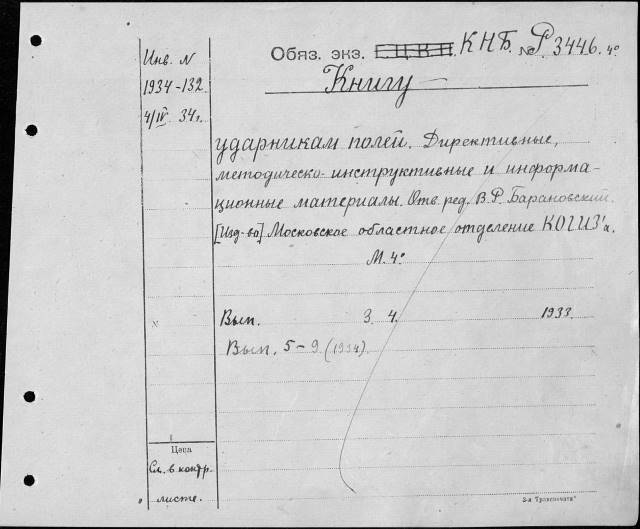 Инв. N
1934-132
4/IV 34г.
Обяз. экз. Г.Ц.К.П. КНБ. № Р 3446. 4°
Книгу
ударникам полей. Директивные,
методическо-инструктивные и информа-
ционные материалы. Отв. ред. В.Р. Барановский.
[Изд-во] Московское областное отделение КОГИЗ'а.
М. 4°
Вып. 3. 4. 1933.
Вып. 5-9 (1934)
Цена
См. в контр.
листе.